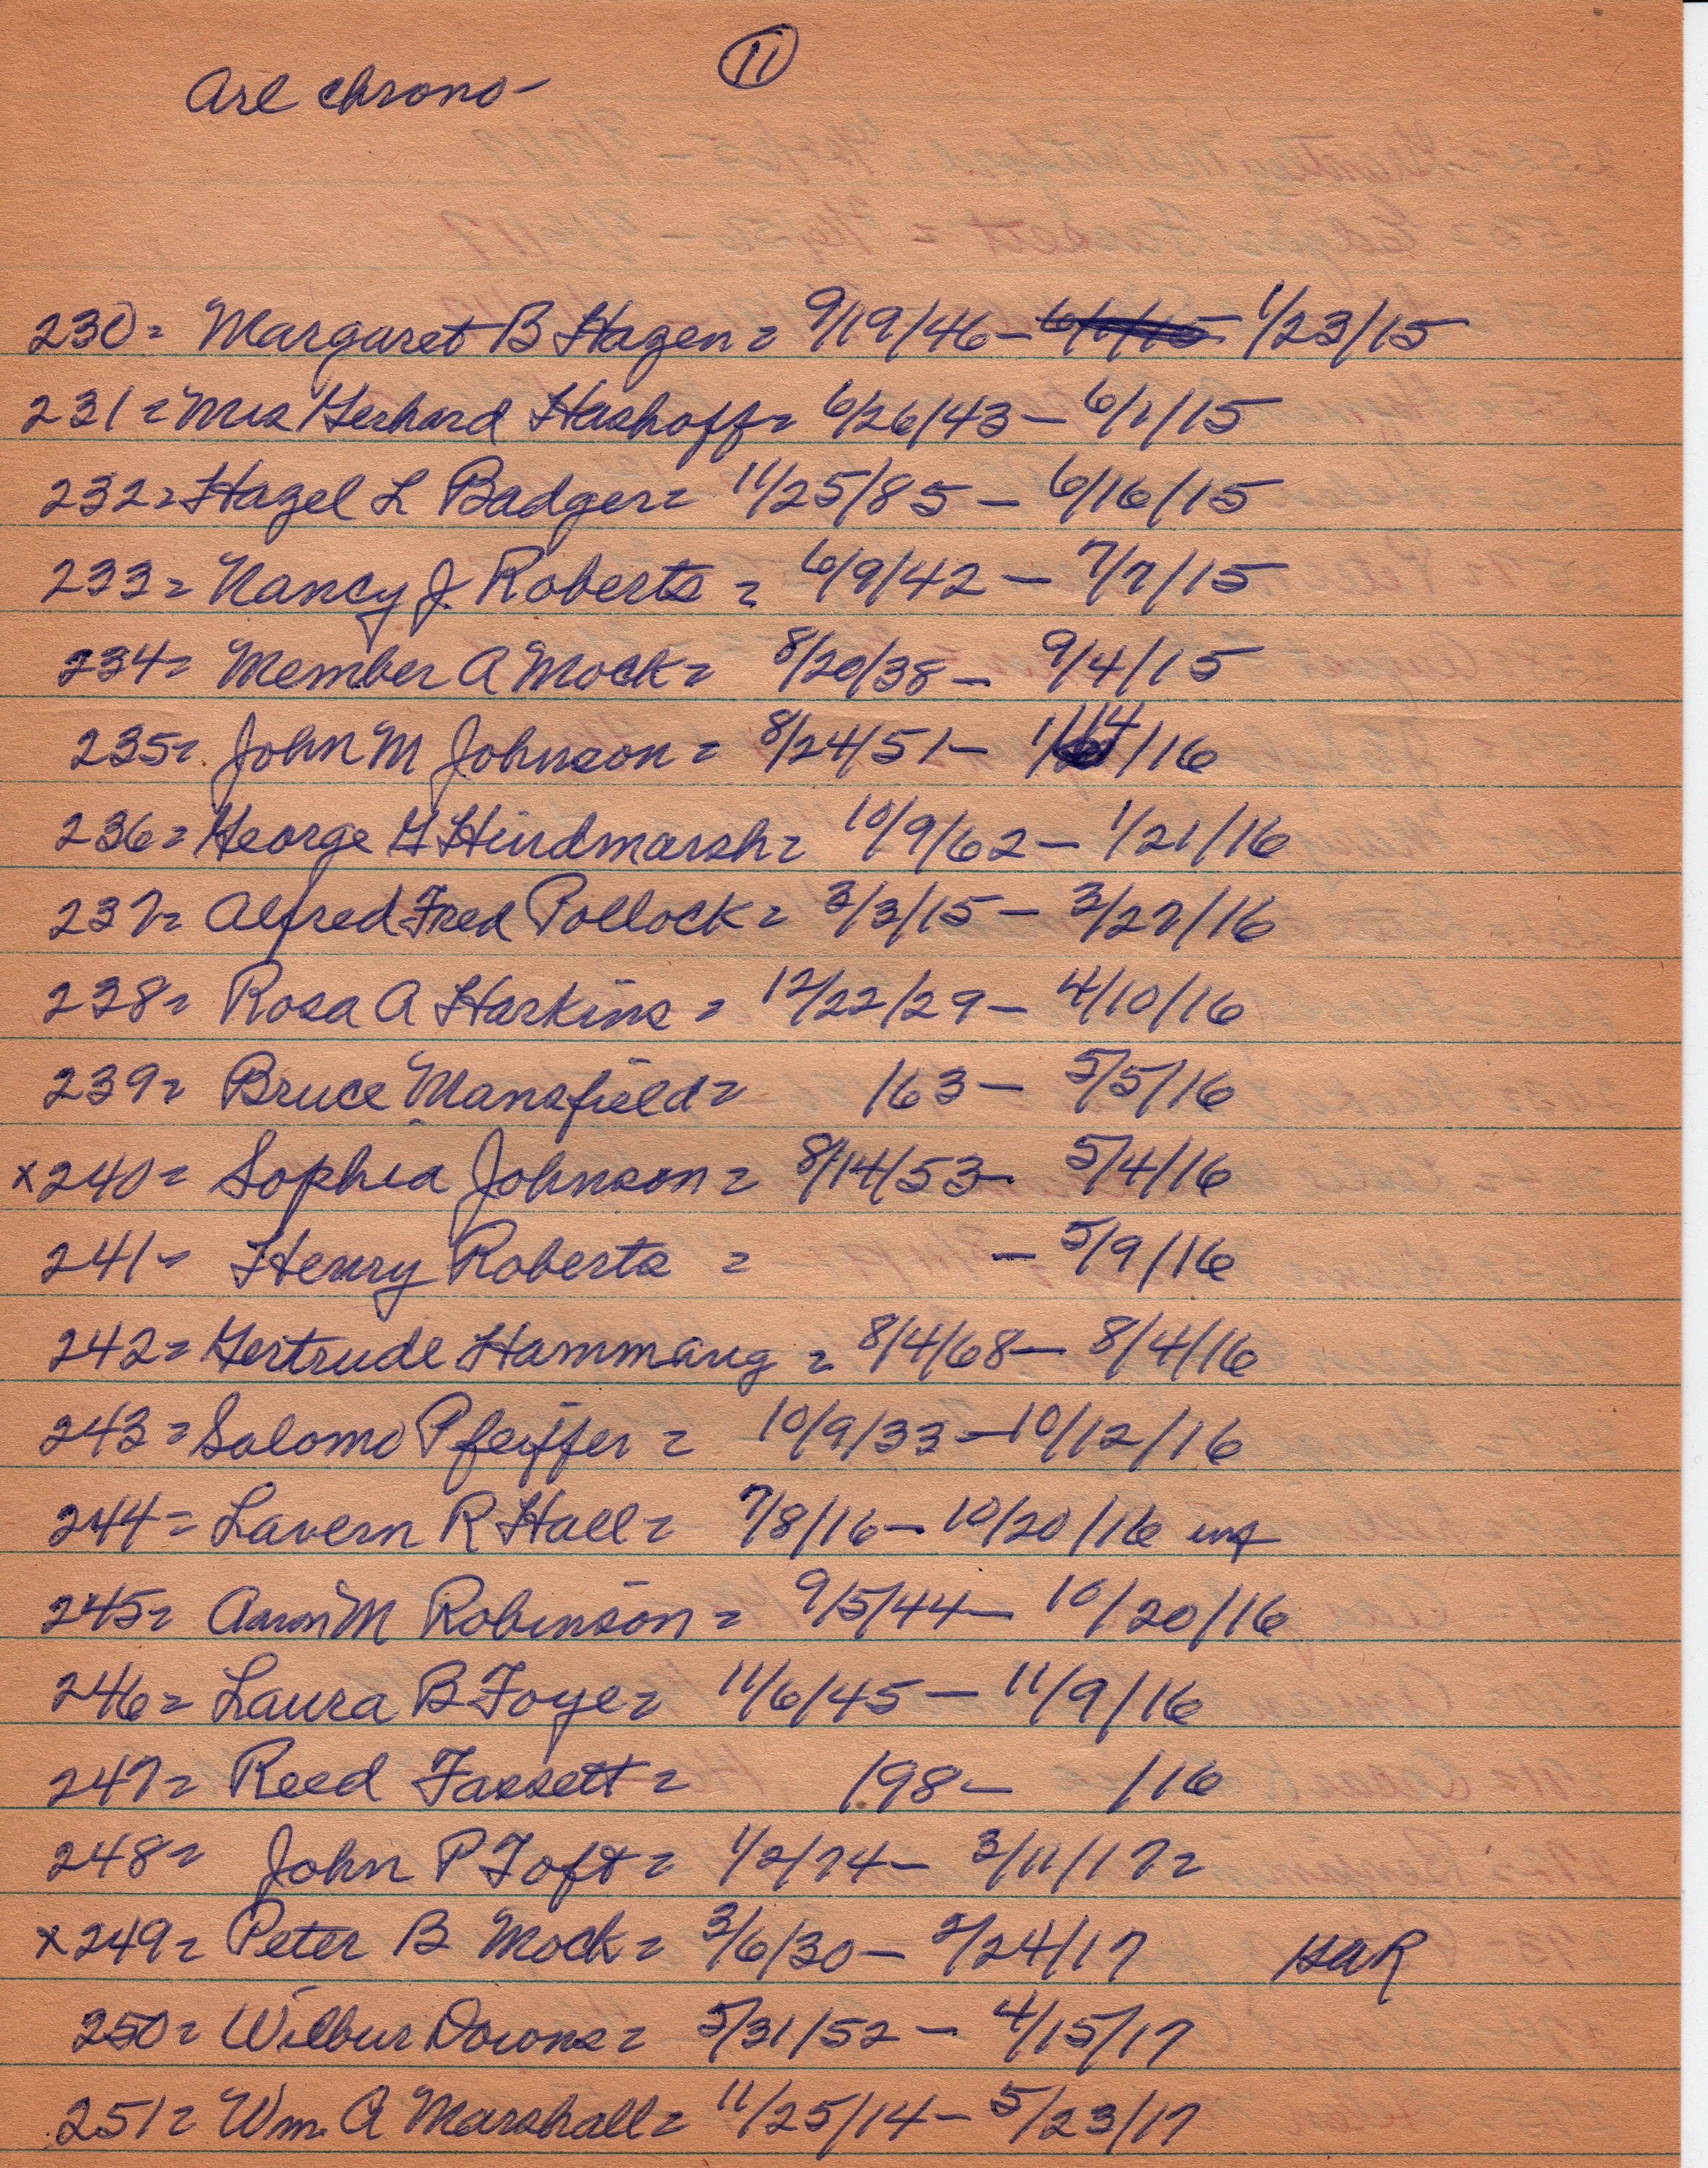 11
Arl chrono-
230= Margaret B Hagen= 9/19/46- 6/1/15 1/23/15
231= Mrs Gerhard Hashoff= 6/26/43- 6/1/15
232= Hazel L Badger= 11/25/85- 6/16/15
233= Nancy J. Roberts= 6/9/42- 7/7/15
234= Member A Mock= 8/20/38- 9/4/15
235= John M Johnson= 8/24/51- 1/14/16
236= George G Hindmarsh= 10/9/62- 1/21/16
237= Alfred Fred Pollock= 3/3/15- 3/27/16
238= Rosa A Harkins= 12/22/29- 4/10/16
239= Bruce Mansfield= /63- 5/5/16
x240= Sophia Johnson= 8/14/53- 5/4/16
241= Henry Roberts= - 5/9/16
242= Gertrude Hammang= 8/4/68- 8/4/16
243= Salomo Pfeiffer= 10/9/33-10/12/16
244= Lavern R Hall= 7/8/16- 10/20/16 inf
245= Aaron M Robinson= 9/5/44- 10/20/16
246= Laura B Foye= 11/6/45- 11/9/16
247= Reed Fassett= /98- /16
248= John P Toft= 1/2/74- 3/11/17=
x249= Peter B Mock= 3/6/30- 2/24/17 WAR
250= Wilbur Downs= 5/31/52- 4/15/17
251= Wm. A Marshall= 11/25/14- 5/23/17